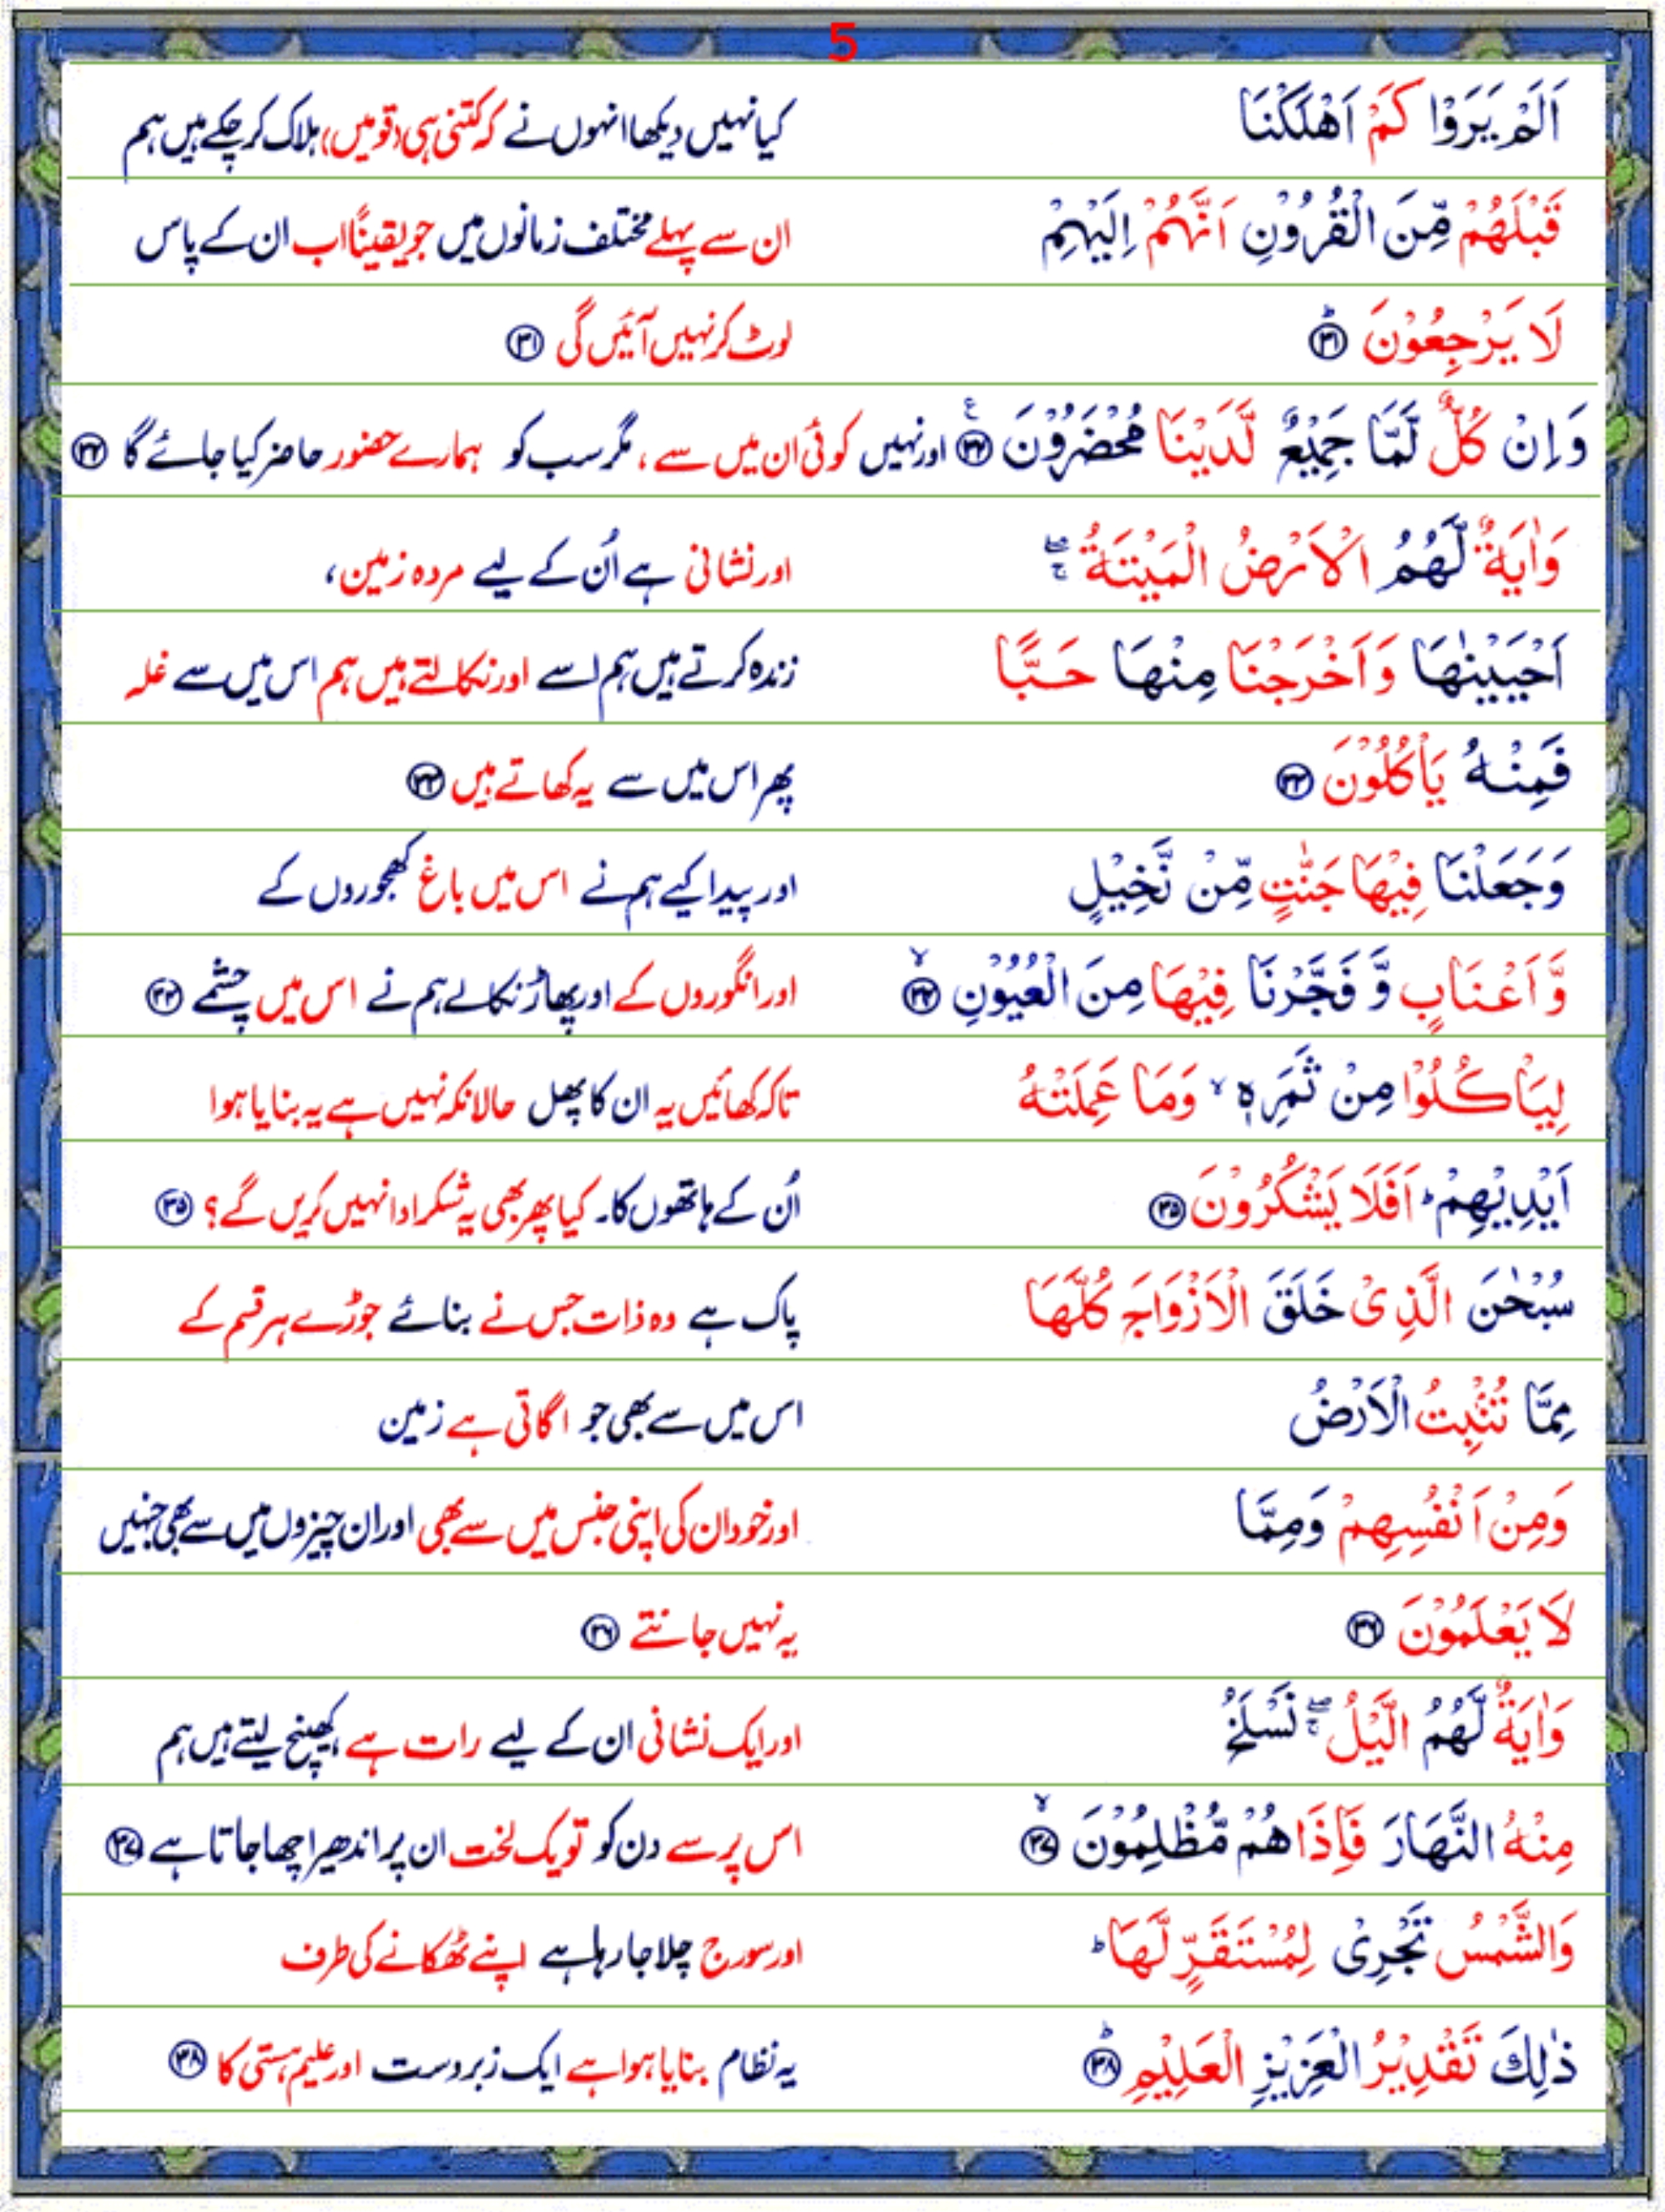 5
اَلَمْ يَرَوْا كَمْ اَهْلَكْنَا کیا نہیں دیکھا انہوں نے کہ کتنی ہی (قومیں) ہلاک کر چکے ہیں ہم
قَبْلَهُمْ مِّنَ الْقُرُوْنِ اَنَّهُمْ اِلَيْهِمْ ان سے پہلے مختلف زمانوں میں جو یقیناً اب ان کے پاس
لَا يَرْجِعُوْنَ ؕ ۳۱ لوٹ کر نہیں آئیں گی ۳۱
وَاِنْ كُلٌّ لَّمَّا جَمِيْعٌ لَّدَيْنَا مُحْضَرُوْنَ ۳۲ ع اور نہیں کوئی ان میں سے ، مگر سب کو ہمارے حضور حاضر کیا جائے گا ۳۲
وَاٰيَةٌ لَّهُمُ الْاَرْضُ الْمَيْتَةُ ۖۚ اور نشانی ہے اُن کے لیے مردہ زمین،
اَحْيَيْنٰهَا وَاَخْرَجْنَا مِنْهَا حَبًّا زندہ کرتے ہیں ہم اسے اور نکالتے ہیں ہم اس میں سے غلہ
فَمِنْهُ يَاْكُلُوْنَ ۳۳ پھر اس میں سے یہ کھاتے ہیں ۳۳
وَجَعَلْنَا فِيْهَا جَنّٰتٍ مِّنْ نَّخِيْلٍ اور پیدا کیے ہم نے اس میں باغ کھجوروں کے
وَّاَعْنَابٍ وَّفَجَّرْنَا فِيْهَا مِنَ الْعُيُوْنِ ۙ ۳۴ اور انگوروں کے اور پھاڑ نکالے ہم نے اس میں چشمے ۳۴
لِيَاْكُلُوْا مِنْ ثَمَرِهٖ ۙ وَمَا عَمِلَتْهُ تاکہ کھائیں یہ ان کا پھل حالانکہ نہیں ہے یہ بنایا ہوا
اَيْدِيْهِمْ ؕ اَفَلَا يَشْكُرُوْنَ ۳۵ اُن کے ہاتھوں کا۔ کیا پھر بھی یہ شکر ادا نہیں کریں گے؟ ۳۵
سُبْحٰنَ الَّذِىْ خَلَقَ الْاَزْوَاجَ كُلَّهَا پاک ہے وہ ذات جس نے بنائے جوڑے ہر قسم کے
مِمَّا تُنْۢبِتُ الْاَرْضُ اس میں سے بھی جو اگاتی ہے زمین
وَمِنْ اَنْفُسِهِمْ وَمِمَّا اور خود ان کی اپنی جنس میں سے بھی اور ان چیزوں میں سے بھی جنہیں
لَا يَعْلَمُوْنَ ۳۶ یہ نہیں جانتے ۳۶
وَاٰيَةٌ لَّهُمُ الَّيْلُ ۖۚ نَسْلَخُ اور ایک نشانی ان کے لیے رات ہے، کھینچ لیتے ہیں ہم
مِنْهُ النَّهَارَ فَاِذَا هُمْ مُّظْلِمُوْنَ ۙ ۳۷ اس پر سے دن کو تو یک لخت ان پر اندھیرا چھا جاتا ہے ۳۷
وَالشَّمْسُ تَجْرِىْ لِمُسْتَقَرٍّ لَّهَا ؕ اور سورج چلا جا رہا ہے اپنے ٹھکانے کی طرف
ذٰلِكَ تَقْدِيْرُ الْعَزِيْزِ الْعَلِيْمِ ؕ ۳۸ یہ نظام بنایا ہوا ہے ایک زبردست اور علیم ہستی کا ۳۸